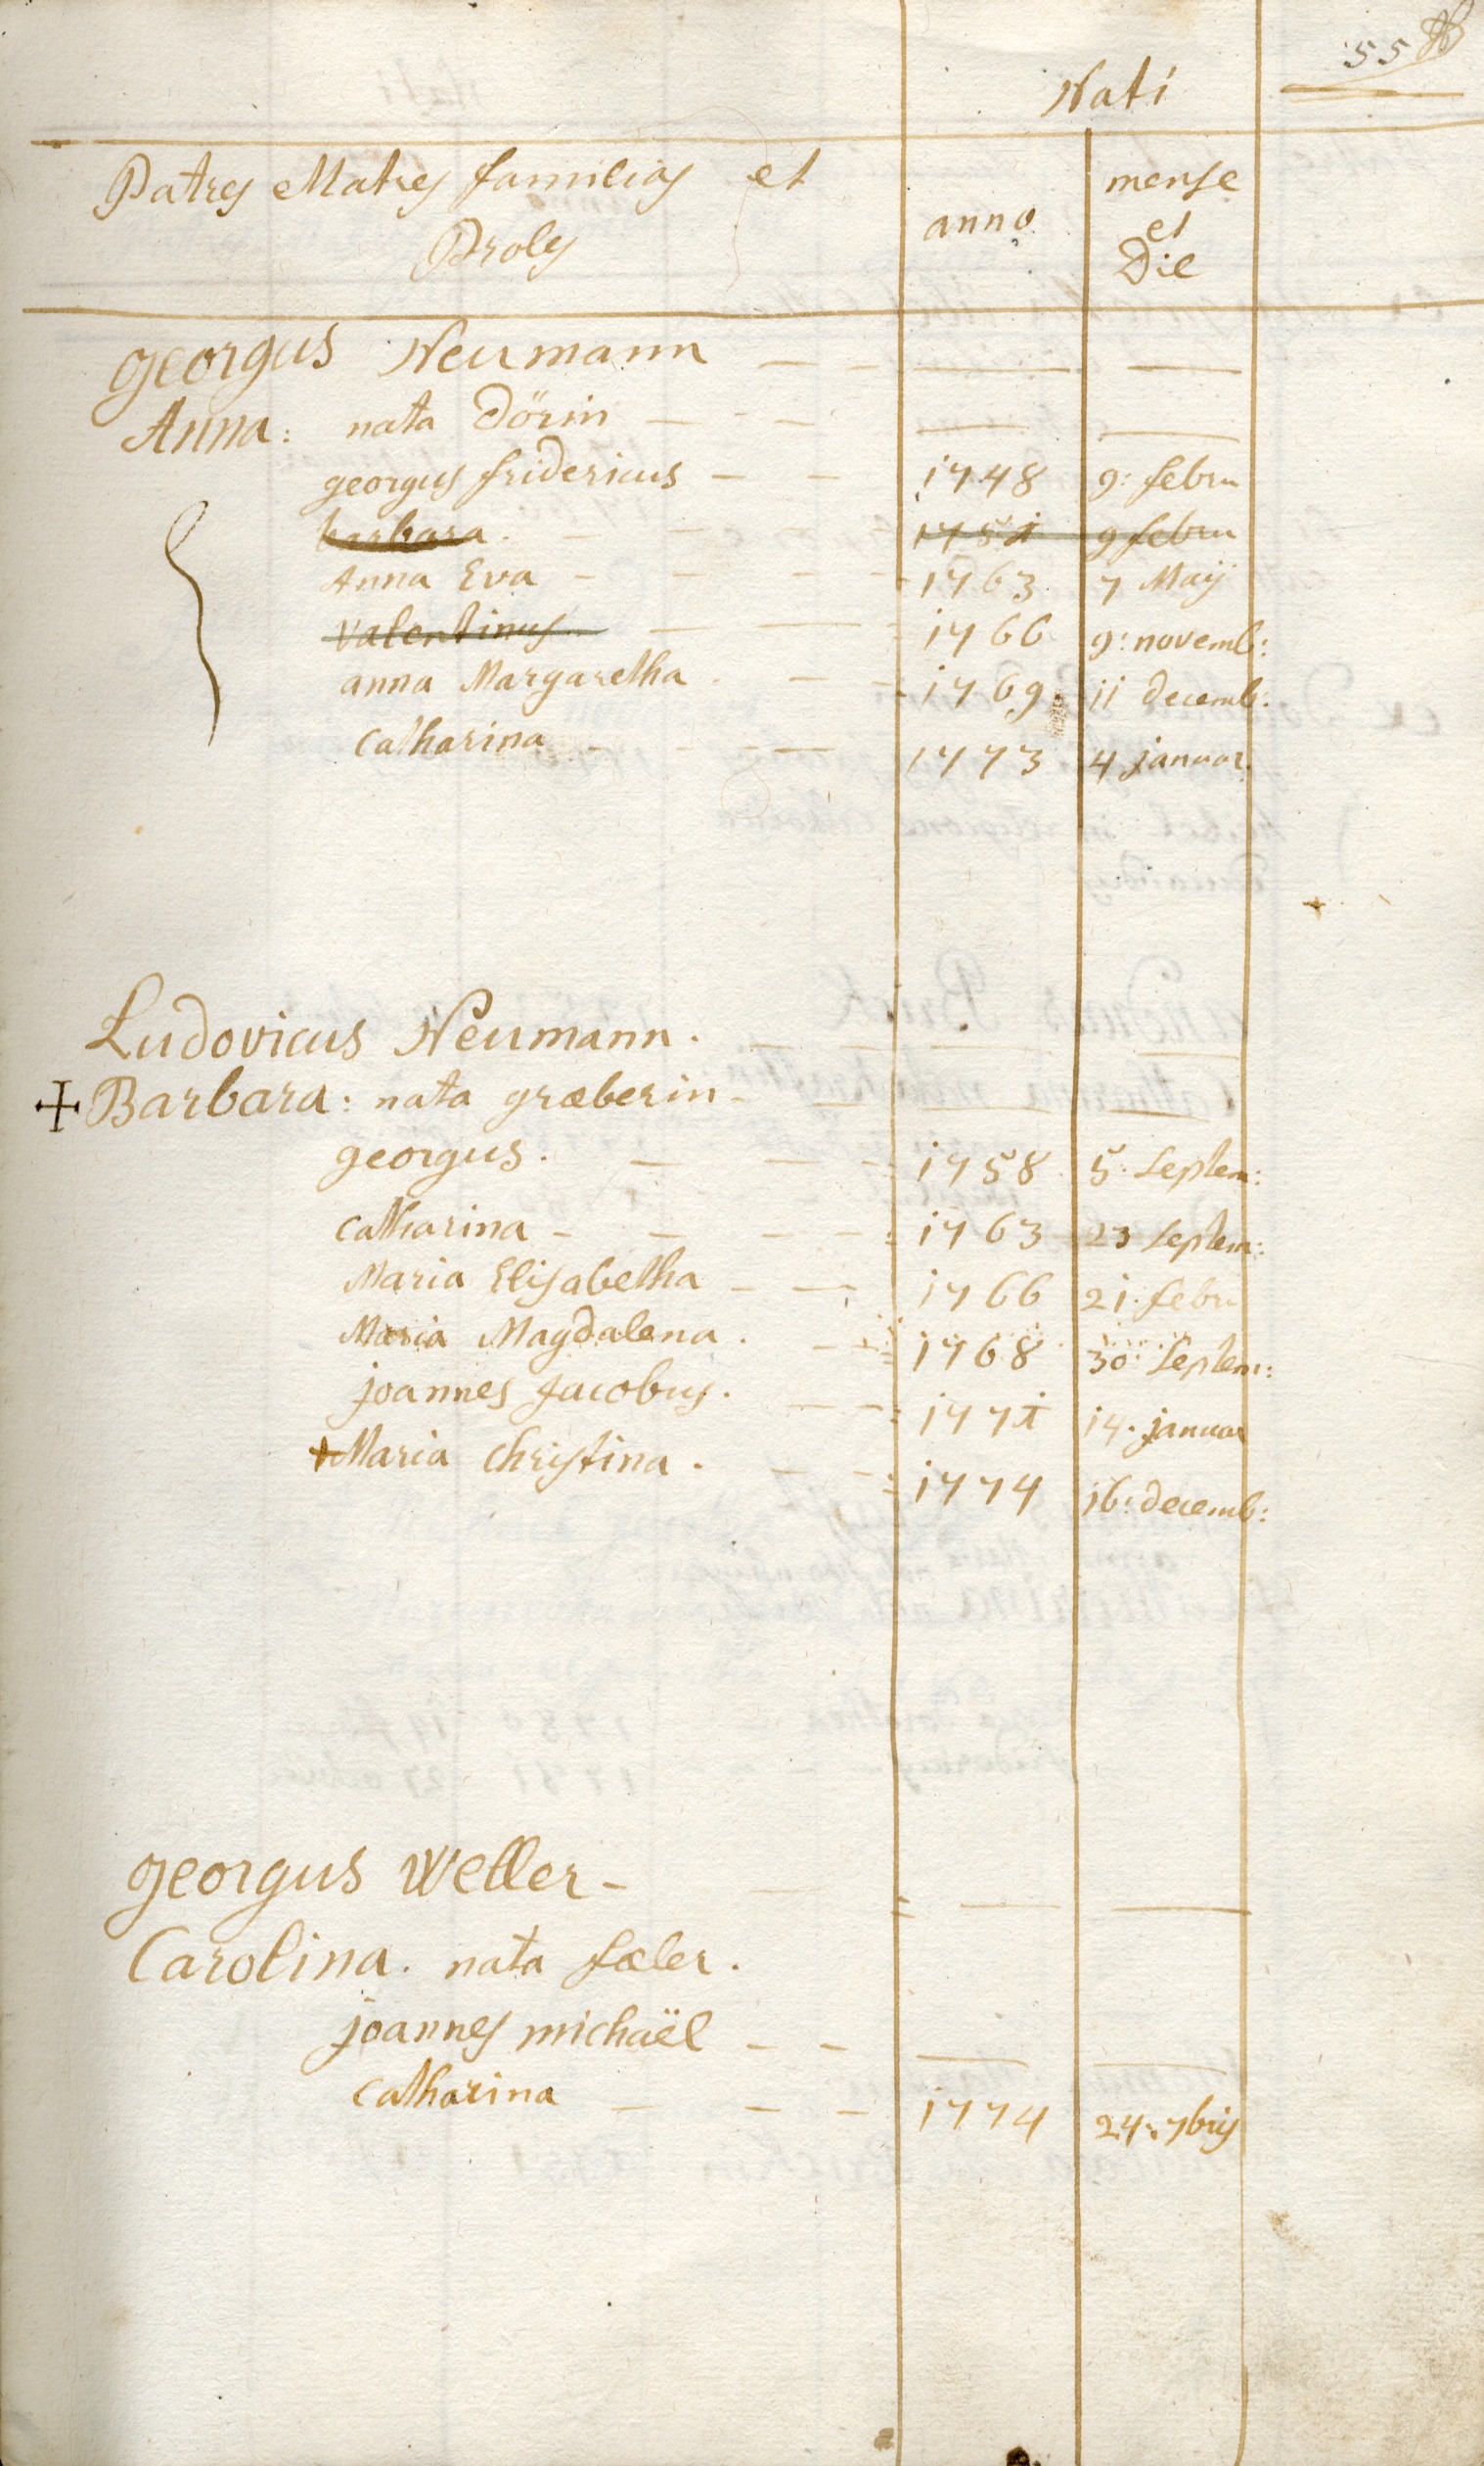 55
Nati
Patres Matres familias et
Proles
anno
mense
et
Die
georgus Neumann — — — —
Anna: nata Dörin — - - — —
georgus fridericus — — 1748 9: febru
barbara. — 1751 9 febru
Anna Eva - — - - 1763. 7 Maÿ
valentinus — — 1766 9: novemb:
anna Margaretha. — - 1769 11 decemb:
catharina - - - — 1773 4 januar.
Ludovicus Neumann. — — — —
Barbara: nata græberin - — — —
georgus. — — - 1758 5: Septem:
catharina - — - - 1763 23 Septem:
Maria Elisabetha - — 1766 21. febru
Maria Magdalena. — 1768 30: Septem:
joannes Jacobus. — - 1771 14. januar
+ Maria christina. — - 1774 16: decemb:
georgus Weller - — — —
Carolina. nata fæler.
joannes michaël - - — —
catharina — - - 1774 24: 7bris